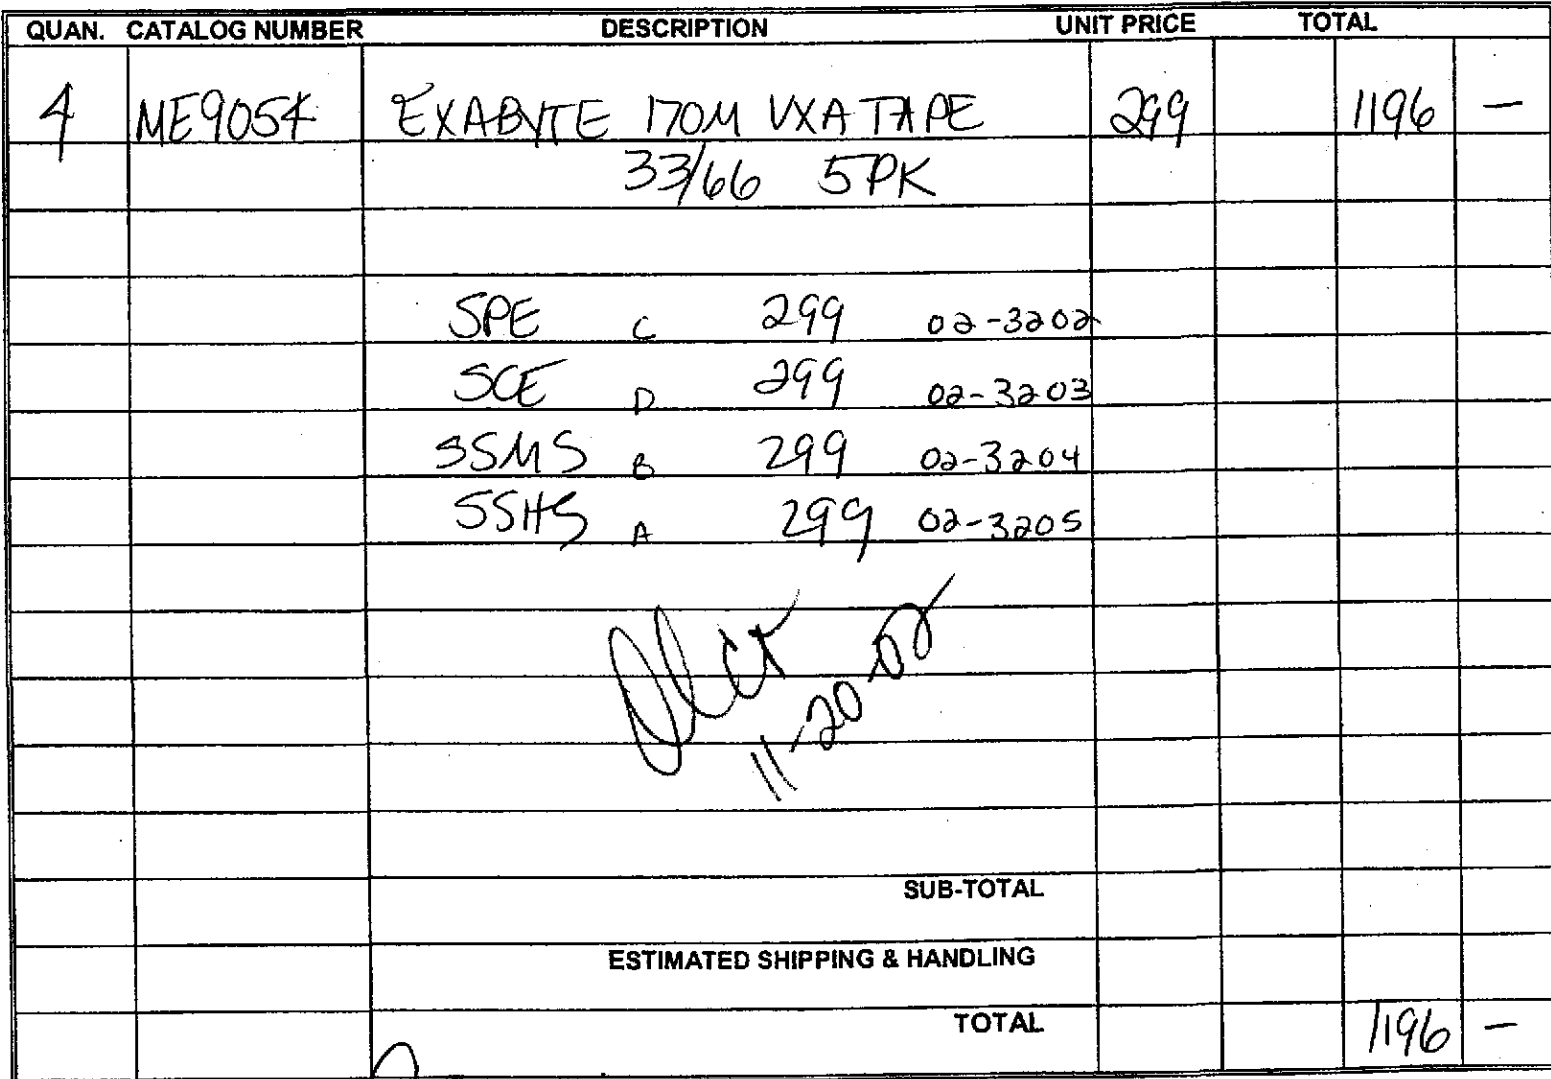 QUAN. CATALOG NUMBER DESCRIPTION UNIT PRICE TOTAL
4 ME9054 EXABYTE 170M VXA TAPE 299 1196 —
33/66 5PK
SPE C 299 02-3202
SCE D 299 02-3203
SSMS B 299 02-3204
SSHS A 299 02-3205
11-20-02
SUB-TOTAL
ESTIMATED SHIPPING & HANDLING
TOTAL 1196 —